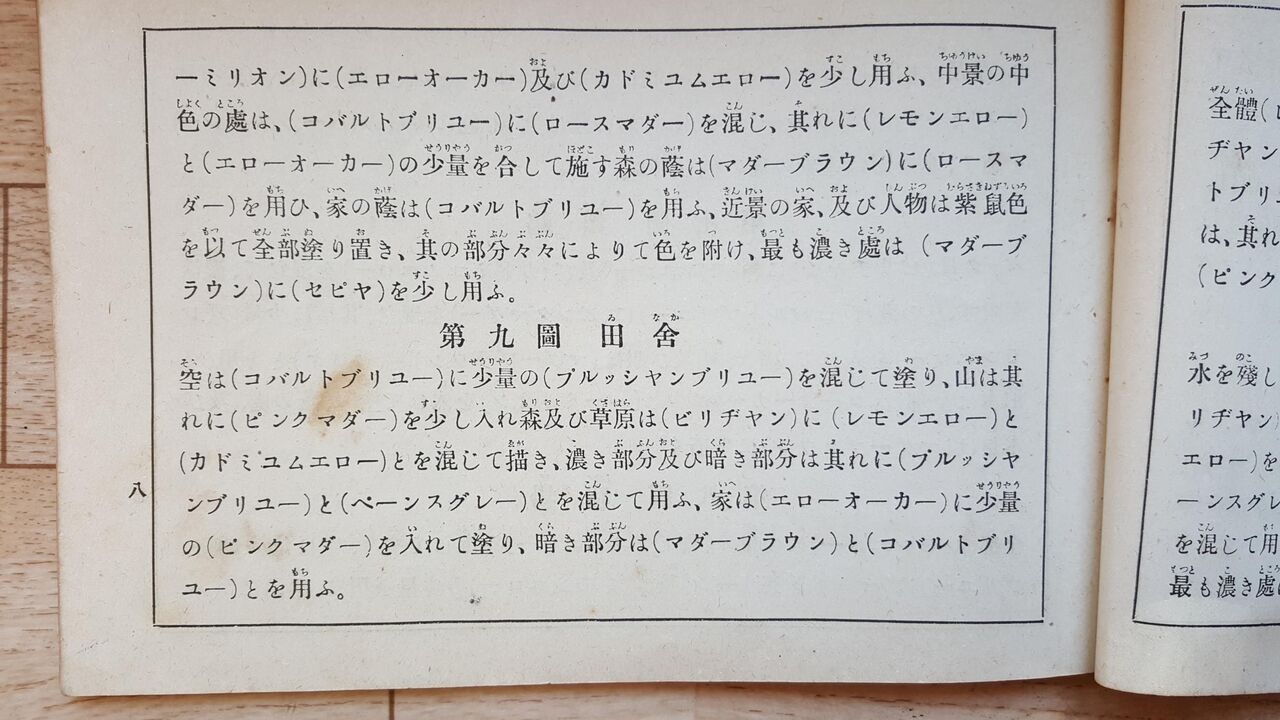 ーミリオン)に(エローオーカー)及び(カドミユムエロー)を少し用ふ、中景の中
色の處は、(コバルトブリユー)に(ロースマダー)を混じ、其れに(レモンエロー)
と(エローオーカー)の少量を合して施す森の蔭は(マダーブラウン)に(ロースマ
ダー)を用ひ、家の蔭は(コバルトブリユー)を用ふ、近景の家、及び人物は紫鼠色
を以て全部塗り置き、其の部分々々によりて色を附け、最も濃き處は(マダーブ
ラウン)に(セピヤ)を少し用ふ。
第九圖 田舍
空は(コバルトブリユー)に少量の(プルッシヤンブリユー)を混じて塗り、山は其
れに(ピンクマダー)を少し入れ森及び草原は(ビリヂヤン)に(レモンエロー)と
(カドミユムエロー)とを混じて描き、濃き部分及び暗き部分は其れに(プルッシヤ
ンブリユー)と(ペーンスグレー)とを混じて用ふ、家は(エローオーカー)に少量
の(ピンクマダー)を入れて塗り、暗き部分は(マダーブラウン)と(コバルトブリ
ユー)とを用ふ。
八
全體(
ヂヤン
トブリユ
は、其れ
(ピンク
水を殘し
リヂヤン
エロー)を
ーンスグレ
を混じて用
最も濃き處